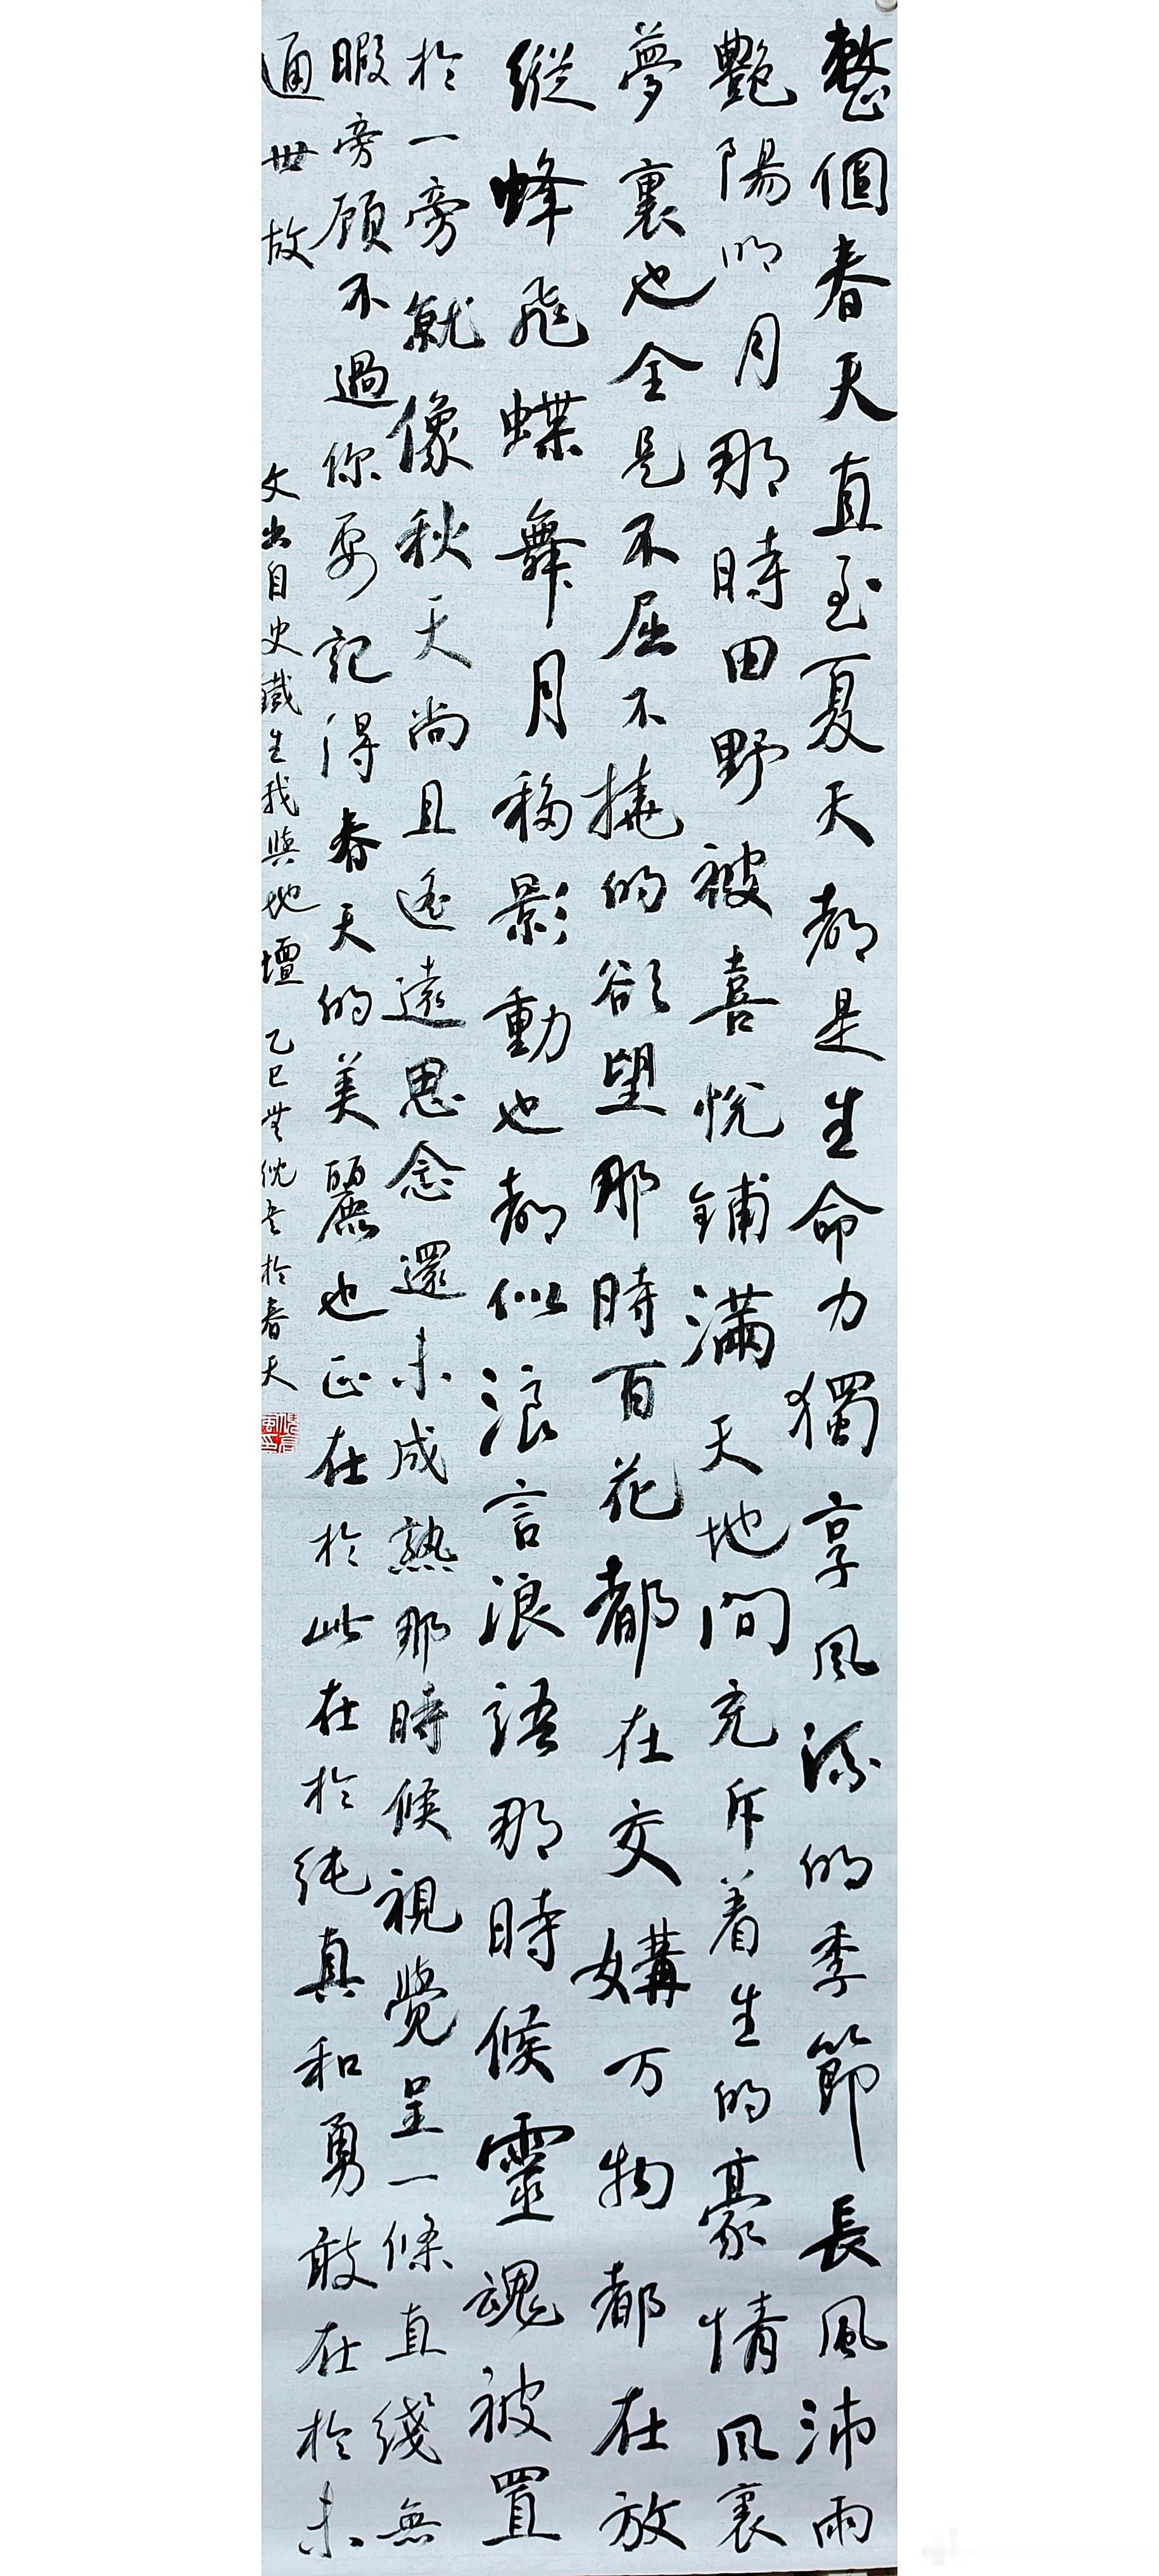 整個春天直至夏天都是生命力獨享風流的季節長風沛雨
艷陽明月那時田野被喜悅鋪滿天地間充斥着生的豪情風裏
夢裏也全是不屈不撓的欲望那時百花都在交媾万物都在放
縱蜂飛蝶舞月移影動也都似浪言浪語那時候靈魂被置
於一旁就像秋天尚且遙遠思念還未成熟那時候視覺呈一條直綫無
暇旁顧不過你要記得春天的美麗也正在於此在於純真和勇敢在於未
通世故
文出自史鐵生我與地壇
乙巳 倪 於春天